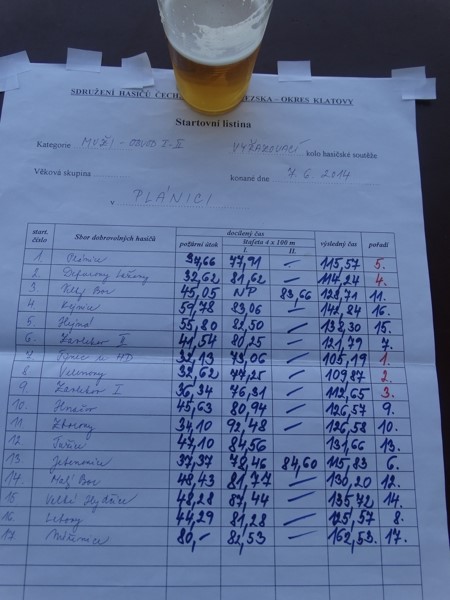 SDRUŽENÍ HASIČŮ ČECH, EZSKA – OKRES KLATOVY
Startovní listina
Kategorie MUŽI - OBVOD I-II VYŘAZOVACÍ kolo hasičské soutěže
Věková skupina konané dne 7.6.2014
v PLÁNICI
start. číslo Sbor dobrovolných hasičů docílený čas výsledný čas pořadí
požární útok štafeta 4 x 100 m
I. II.
1. Plánice 37,66 77,91 — 115,57 5.
2. 32,62 81,62 — 114,24 4.
3. Bor 45,05 NP 83,66 128,71 11.
4. 59,78 83,06 — 142,84 16.
5. 55,80 82,50 — 138,30 15.
6. II 41,54 80,25 — 121,79 7.
7. 32,13 73,06 — 105,19 1.
8. 32,62 77,25 — 109,87 2.
9. I 36,34 76,31 — 112,65 3.
10. 45,63 80,94 — 126,57 9.
11. Zborovy 34,10 92,48 — 126,58 10.
12. 47,10 84,56 131,66 13.
13. 37,37 78,46 84,60 115,83 6.
14. Malý Bor 48,43 81,77 — 130,20 12.
15. Velké 48,28 87,44 — 135,72 14.
16. 44,29 81,28 — 125,57 8.
17. 80,- 82,53 — 162,53 17.